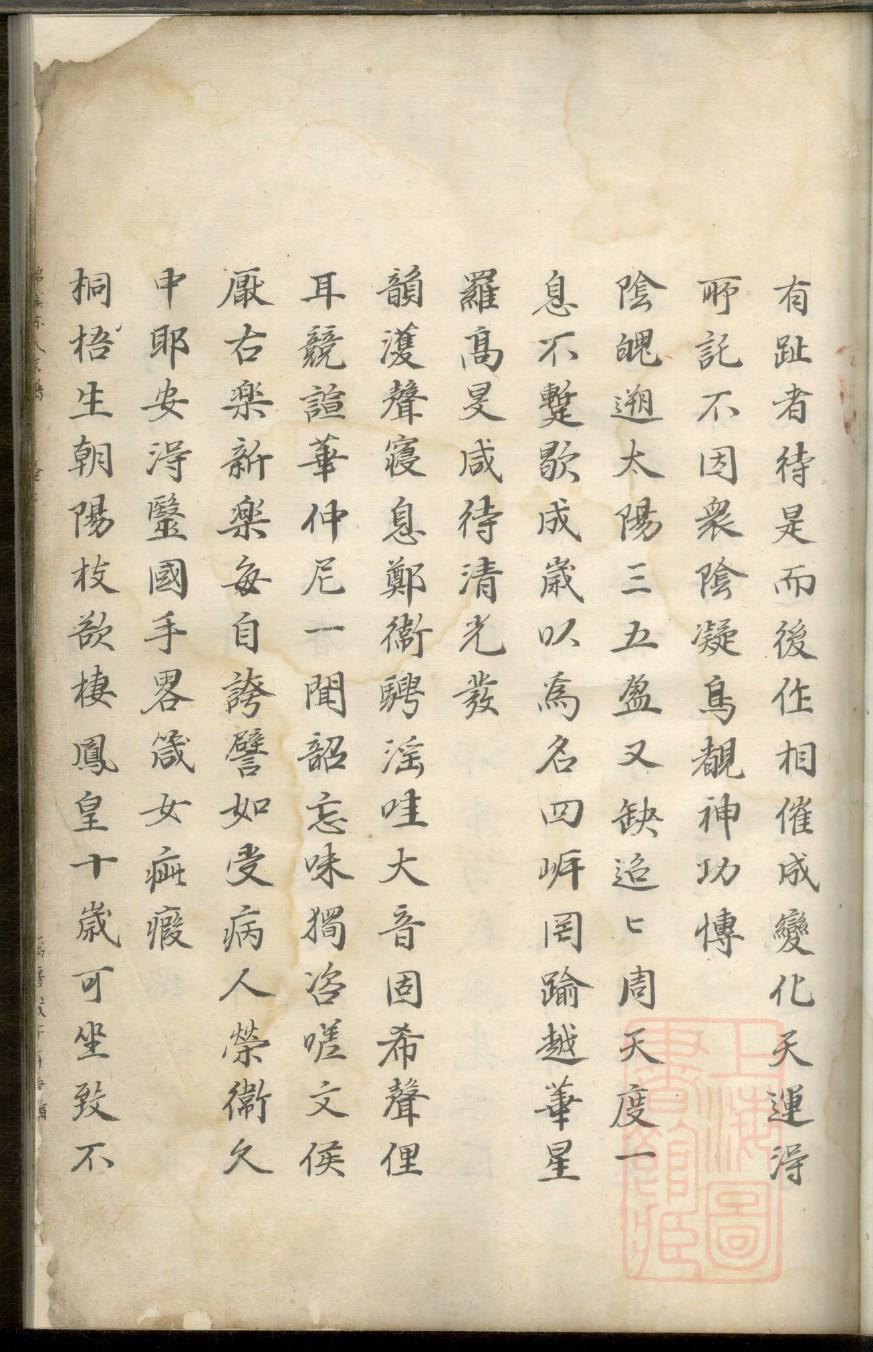 有趾者待是而後作相催成變化天運得
所託不因衆陰凝烏覩神功慱
陰魄遡太陽三五盈又缺迨匕周天度一
息不蹔歇成歲以爲名四㟁罔踰越華星
羅髙旻咸待清光發
韻濩聲寢息鄭衛騁滛哇大音固希聲俚
耳競諠華仲尼一聞韶忘味獨咨嗟文侯
厭右楽新楽每自誇譬如受病人榮衛久
申耶安得毉國手畧箴女疵瘕
桐梧生朝陽枝欲棲鳳皇十歲可坐致不
上海圖書館藏